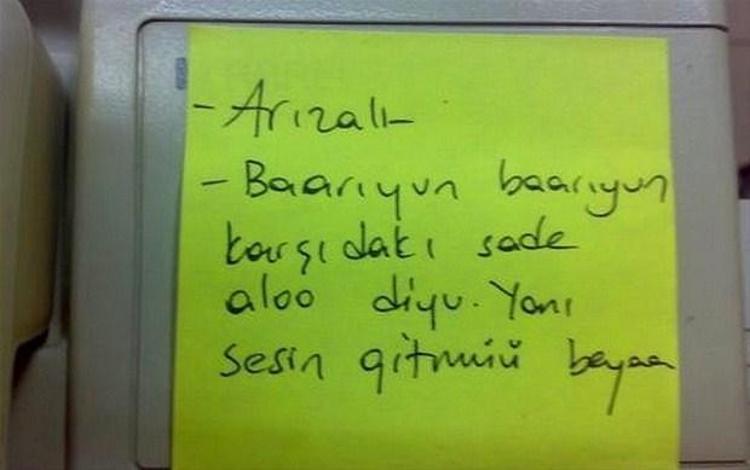 - Arızalı-
- Baarıyun baarıyun
karşıdakı sade
aloo diyu. Yanı
sesin gitmiü beyaa